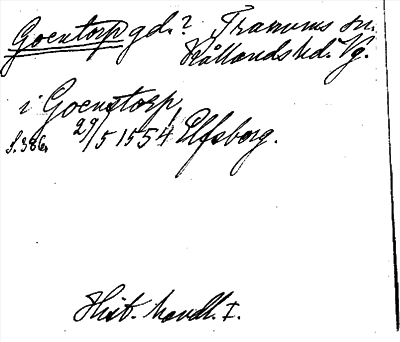 Goentorp gd.? Tranums sn.
Kållands hd. Vg.
i Goenstorp,
s. 386. 29/5 1554 Elfsborg.
Hist. handl. I.